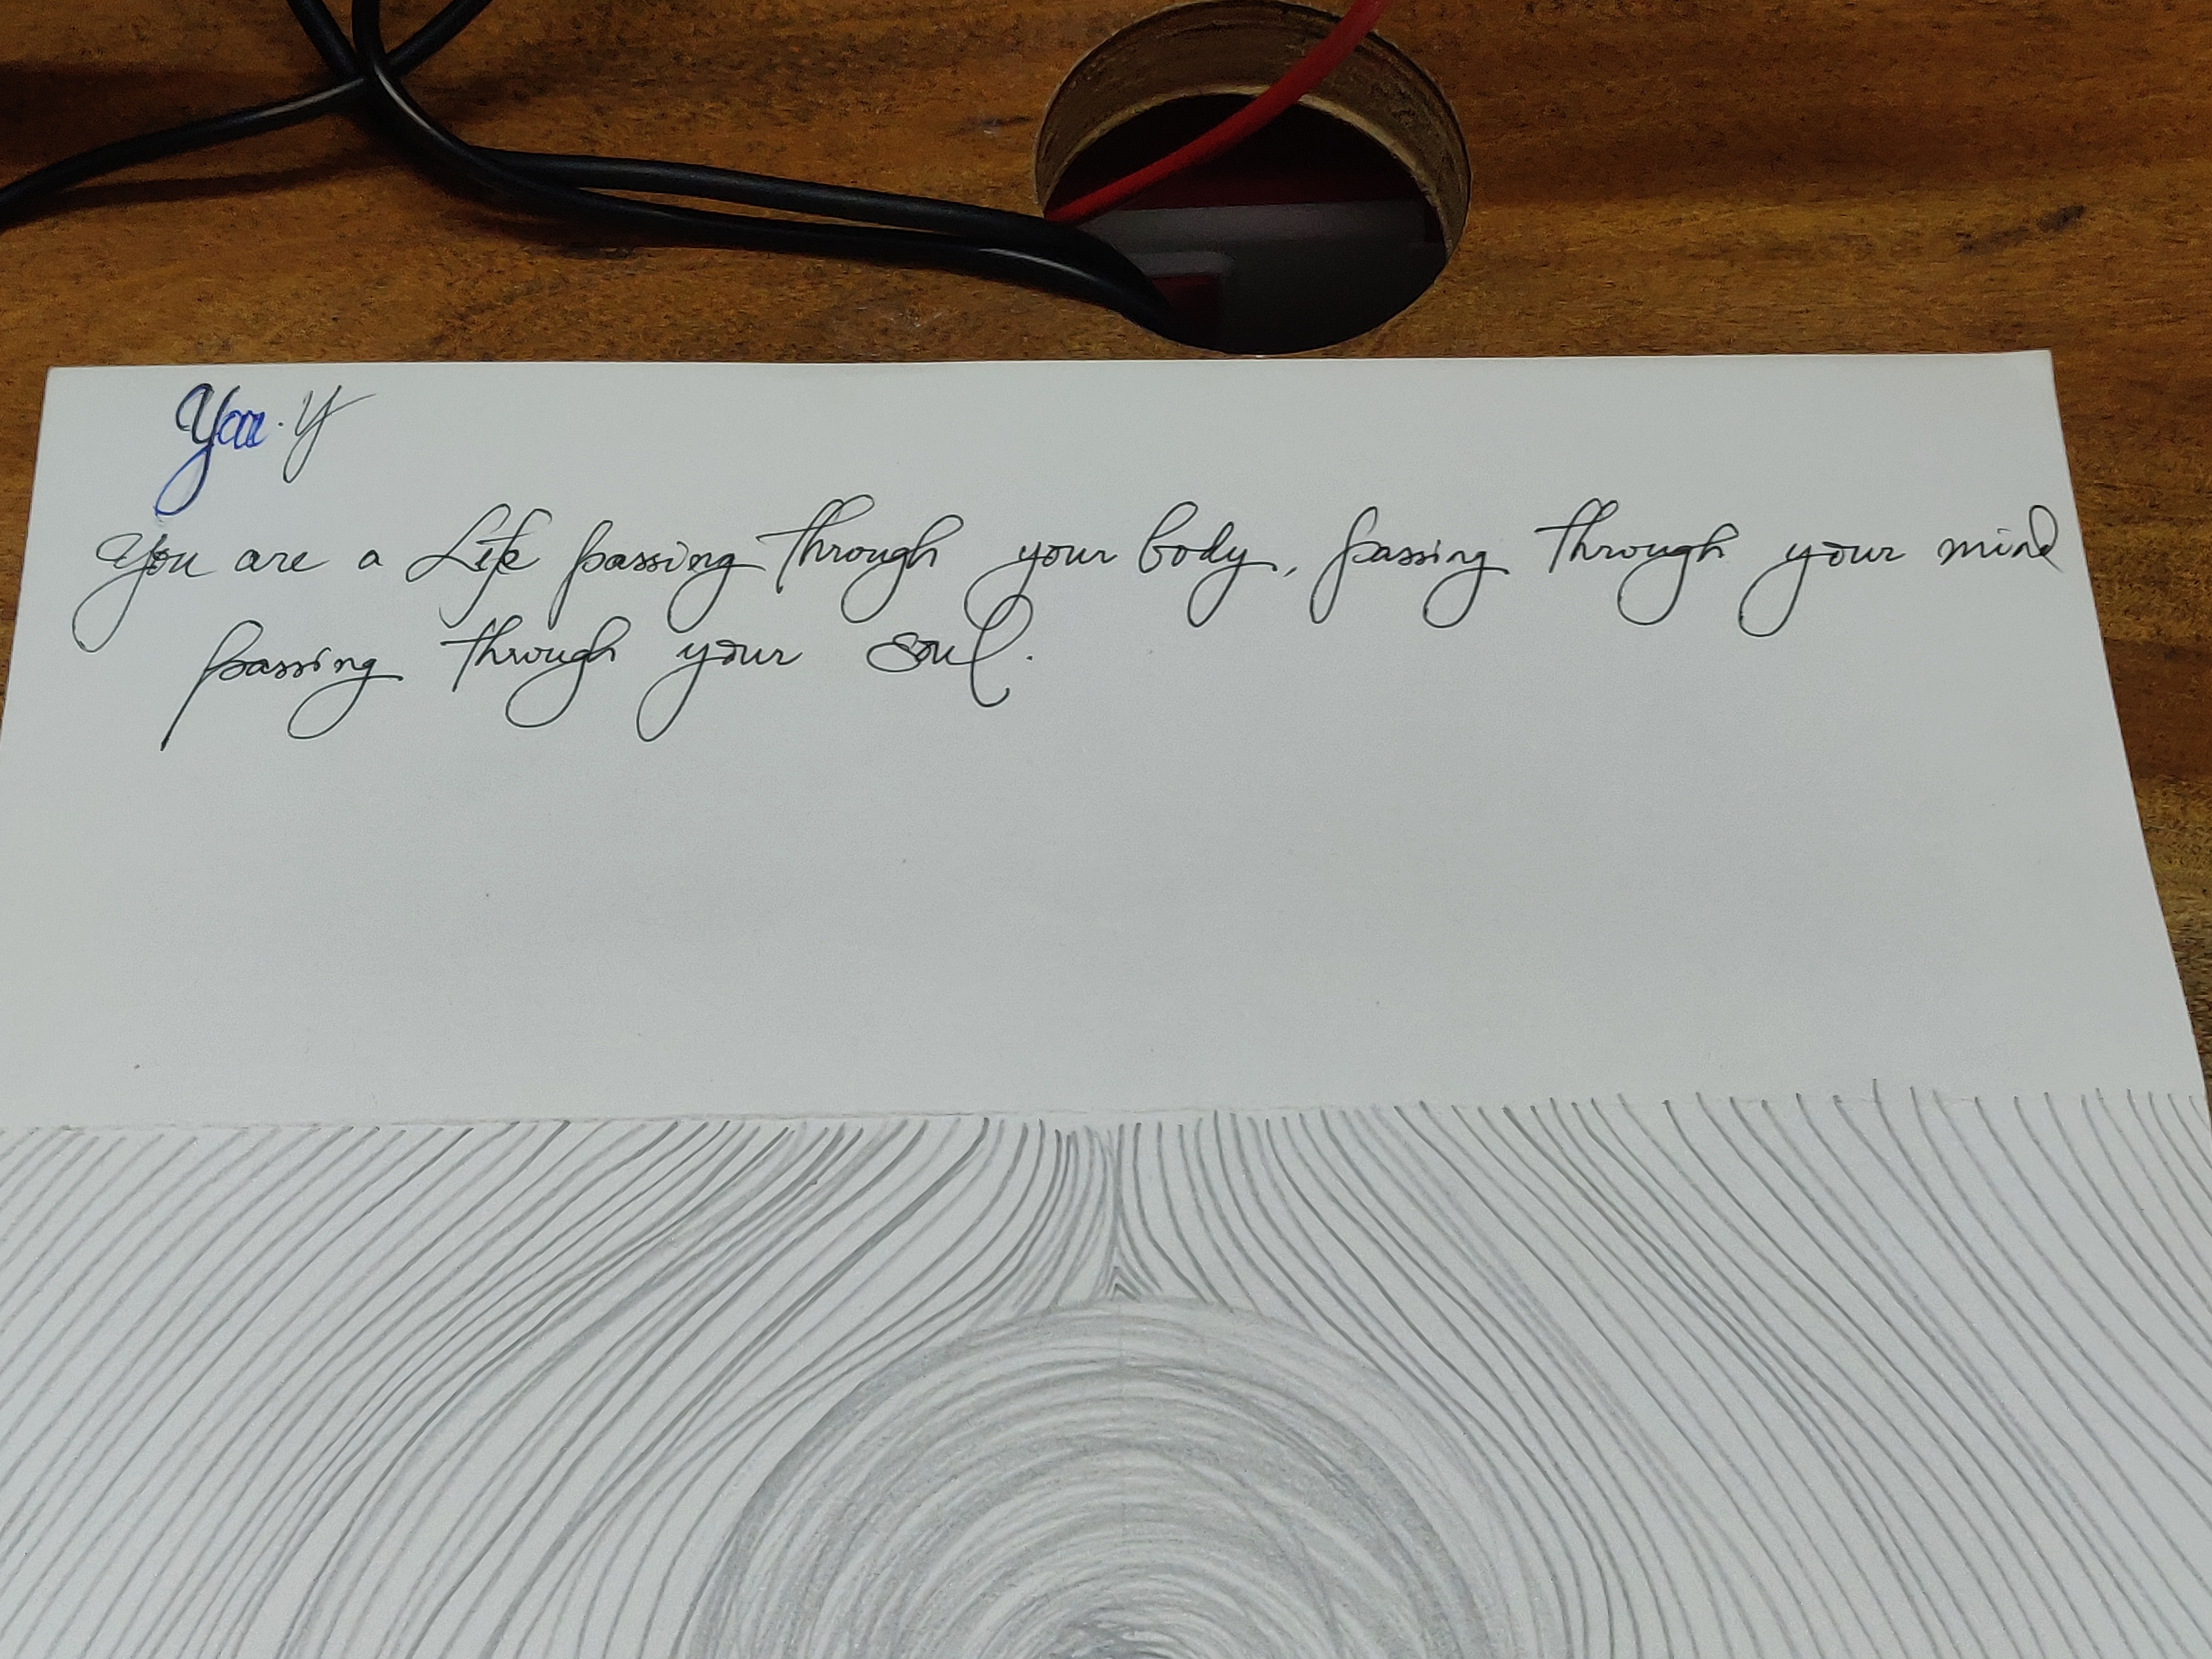 You are a Life passing through your body, passing through your mind
passing through your soul.